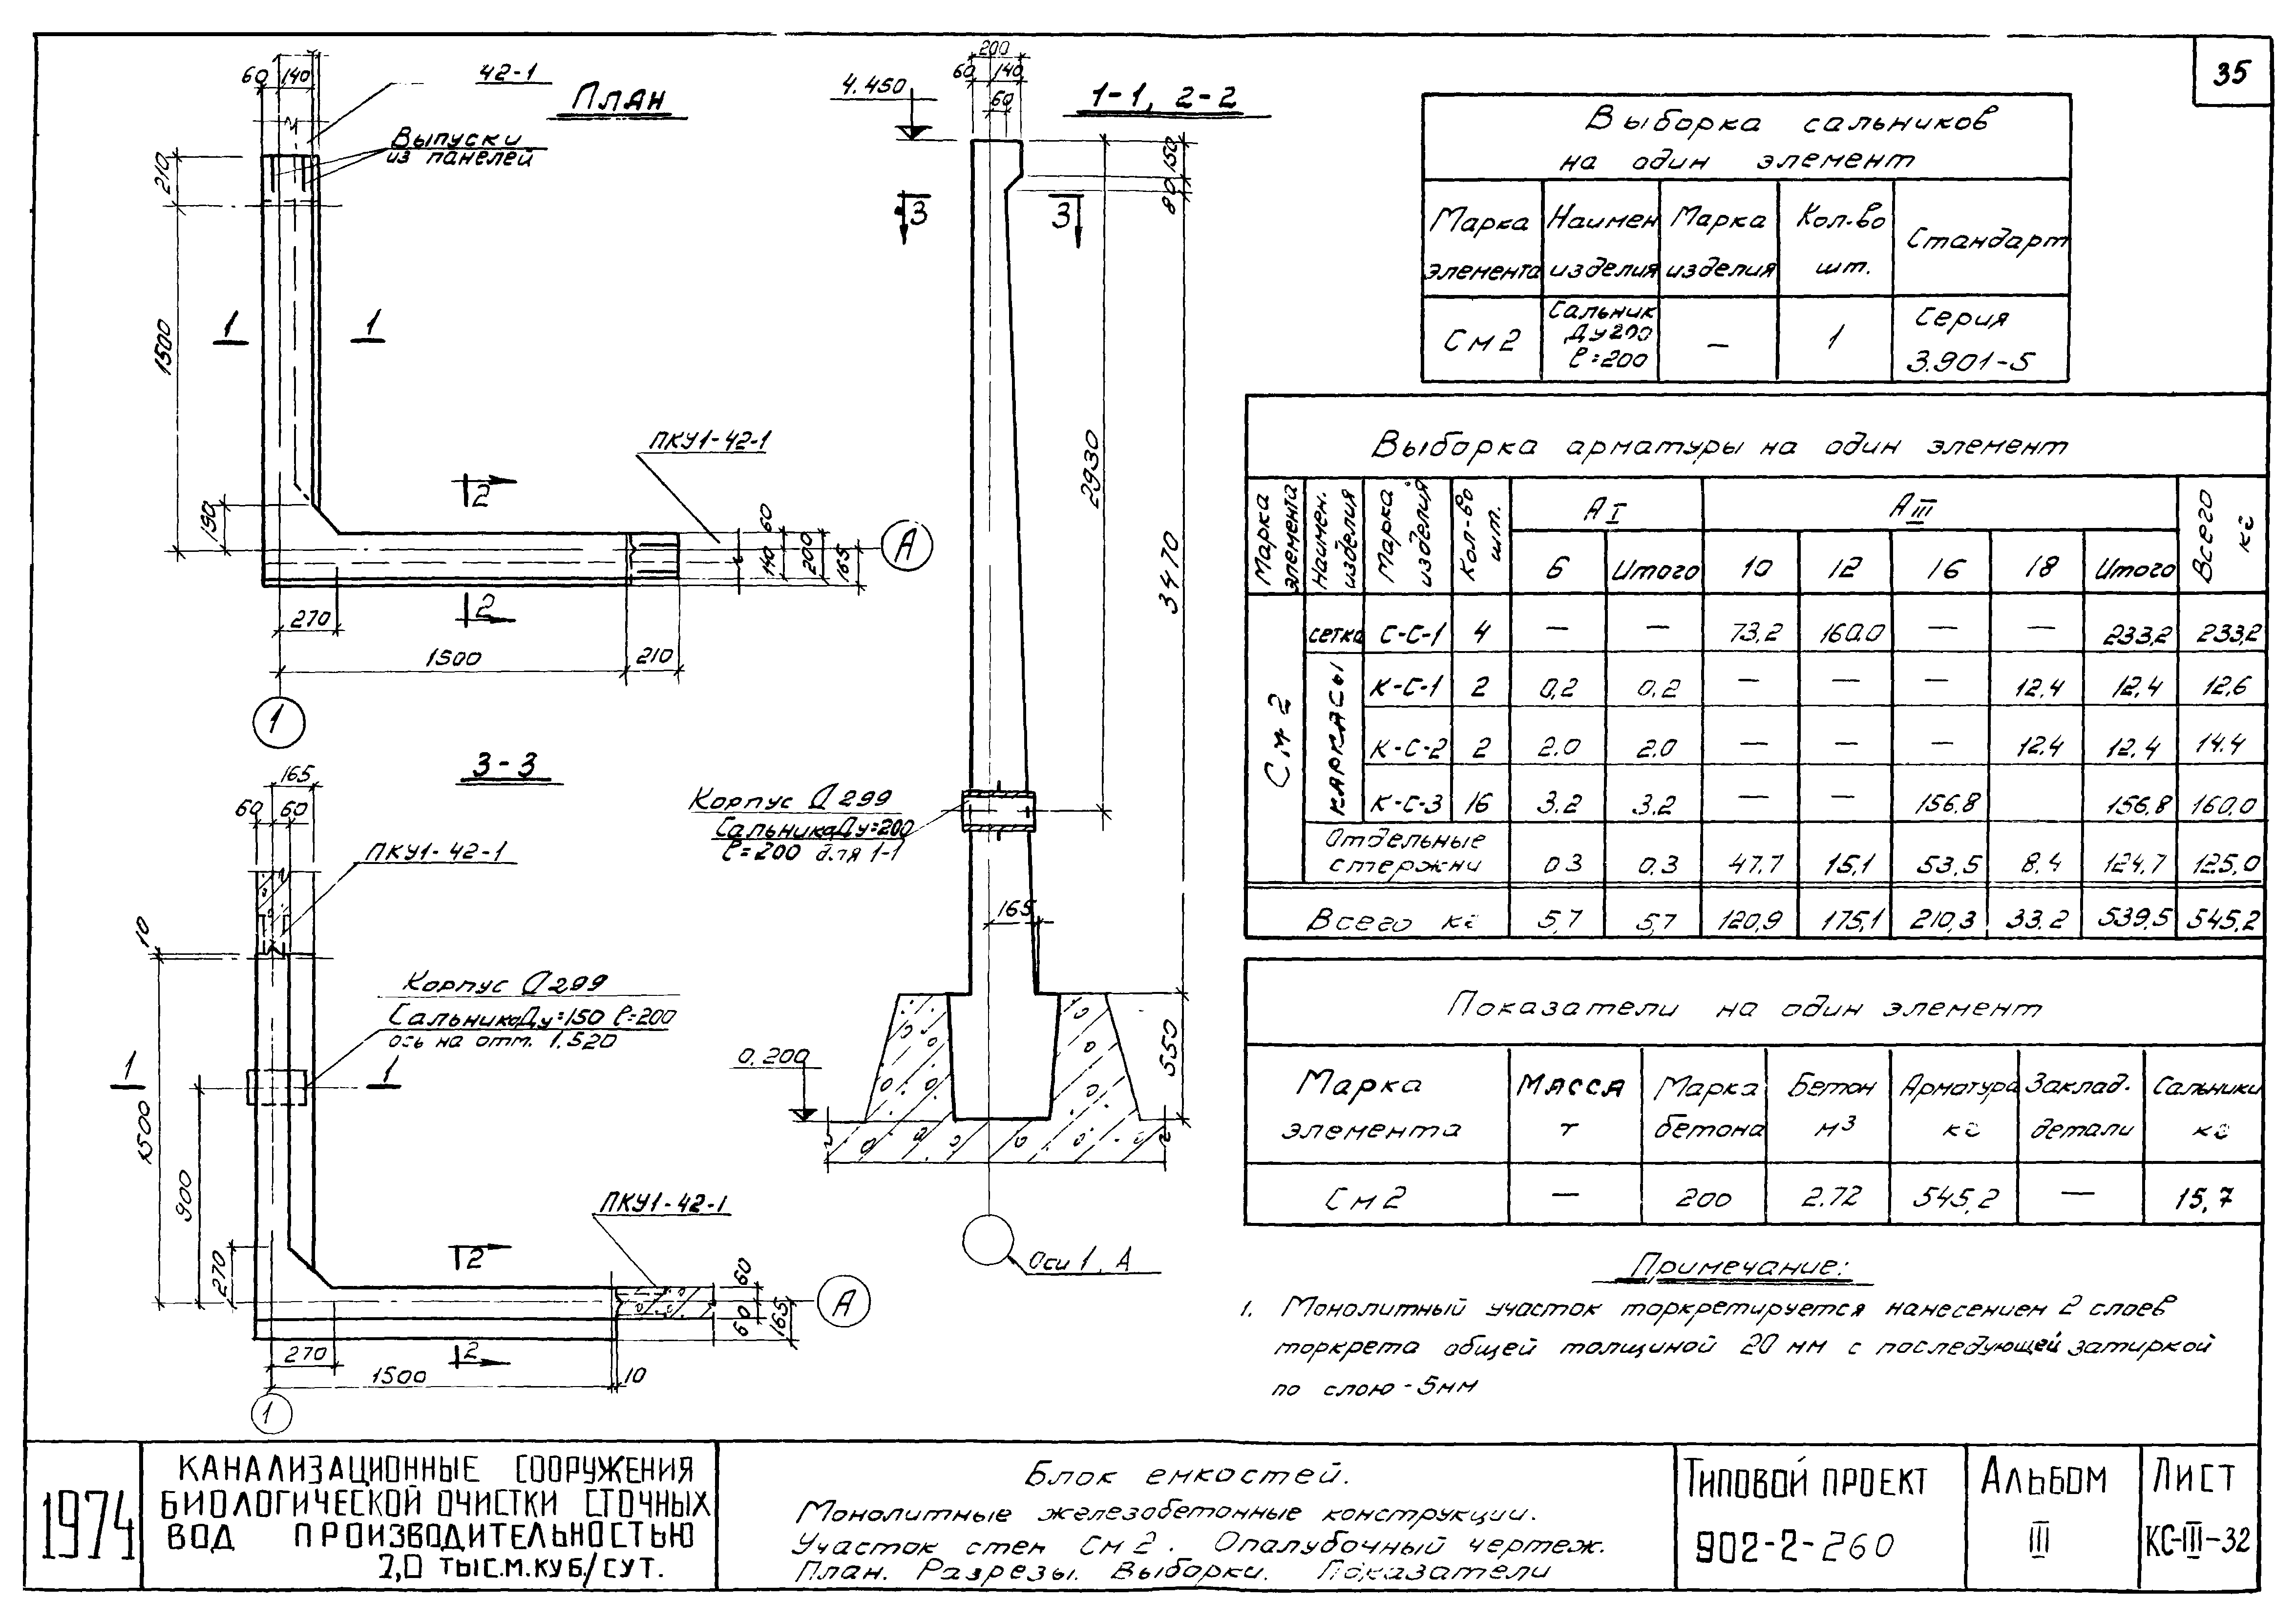 35
План
60 140
42-1
Выпуски
из панелей
210
1500
190
1 1
2
ПКУ1-42-1
60
140
200
165
А
2
270
1500 210
1
1-1, 2-2
200
60 140
60
4.450
150
80
3 3
2930
3470
Корпус Д 299
Сальника Ду=200
ℓ=200 для 1-1
165
550
0.200
Оси 1, А
3-3
165
60 60
ПКУ1-42-1
10
Корпус Д 299
Сальника Ду=150 ℓ=200
ось на отм. 1.520
1 1
1500
900
270
ПКУ1-42-1
2
60
60
165
А
2
270
1500 10
1
Выборка сальников
на один элемент
Марка элемента | Наимен изделия | Марка изделия | Кол-во шт. | Стандарт
См 2 | Сальник Ду 200 ℓ=200 | — | 1 | Серия 3.901-5
Выборка арматуры на один элемент
Марка элемента | Наимен. изделия | Марка изделия | Кол-во шт. | А I | А III | Всего кг
6 | Итого | 10 | 12 | 16 | 18 | Итого
См 2
сетка | С-С-1 | 4 | — | — | 73,2 | 160.0 | — | — | 233,2 | 233,2
КАРКАСЫ
К-С-1 | 2 | 0,2 | 0,2 | — | — | — | 12,4 | 12,4 | 12,6
К-С-2 | 2 | 2.0 | 2.0 | — | — | — | 12.4 | 12,4 | 14.4
К-С-3 | 16 | 3.2 | 3.2 | — | — | 156.8 | 156,8 | 160,0
Отдельные стержни | 0 3 | 0,3 | 47,7 | 15,1 | 53,5 | 8,4 | 124,7 | 125,0
Всего кг | 5,7 | 5,7 | 120,9 | 175,1 | 210,3 | 33.2 | 539,5 | 545,2
Показатели на один элемент
Марка элемента | МАССА т | Марка бетона | Бетон м3 | Арматура кг | Заклад. детали | Сальники кг
См 2 | — | 200 | 2.72 | 545,2 | — | 15,7
Примечание:
1. Монолитный участок торкретируется нанесением 2 слоев
торкрета общей толщиной 20 мм с последующей затиркой
по слою - 5мм
1974
КАНАЛИЗАЦИОННЫЕ СООРУЖЕНИЯ
БИОЛОГИЧЕСКОЙ ОЧИСТКИ СТОЧНЫХ
ВОД ПРОИЗВОДИТЕЛЬНОСТЬЮ
7,0 ТЫС.М.КУБ./СУТ.
Блок емкостей.
Монолитные железобетонные конструкции.
Участок стен См 2. Опалубочный чертеж.
План. Разрезы. Выборки. Показатели
ТИПОВОЙ ПРОЕКТ
902-2-260
АЛЬБОМ
III
ЛИСТ
КС-III-32